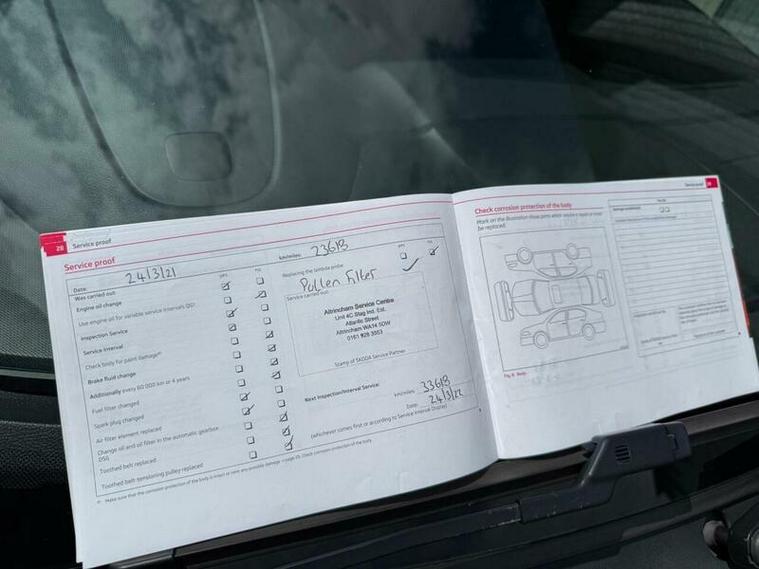 28 Service proof
Service proof
Date: 24/3/21
km/miles: 23618
Was carried out:
YES
NO
Engine oil change
Use engine oil for variable service intervals QG1
Inspection Service
Service Interval
Check body for paint damage
Brake fluid change
Additionally every 60 000 km or 4 years
Fuel filter changed
Spark plug changed
Air filter element replaced
Change oil and oil filter in the automatic gearbox
DSG
Toothed belt replaced
Toothed belt tensioning pulley replaced
Replacing the lambda probe
YES
Pollen Filter
Service carried out:
Altrincham Service Centre
Unit 4C Stag Ind. Est.
Atlantic Street
Altrincham WA14 5DW
0161 928 3553
Stamp of ŠKODA Service Partner
Next Inspection/Interval Service:
km/miles: 33618
Date: 24/3/22
(whichever comes first or according to Service Interval Display)
Make sure that the corrosion protection of the body is intact or have any possible damage » page 29, Check corrosion protection of the body.
Service proof
Check corrosion protection of the body
Mark on the illustration those parts which require a repair or must
be replaced.
Fig. 8 Body